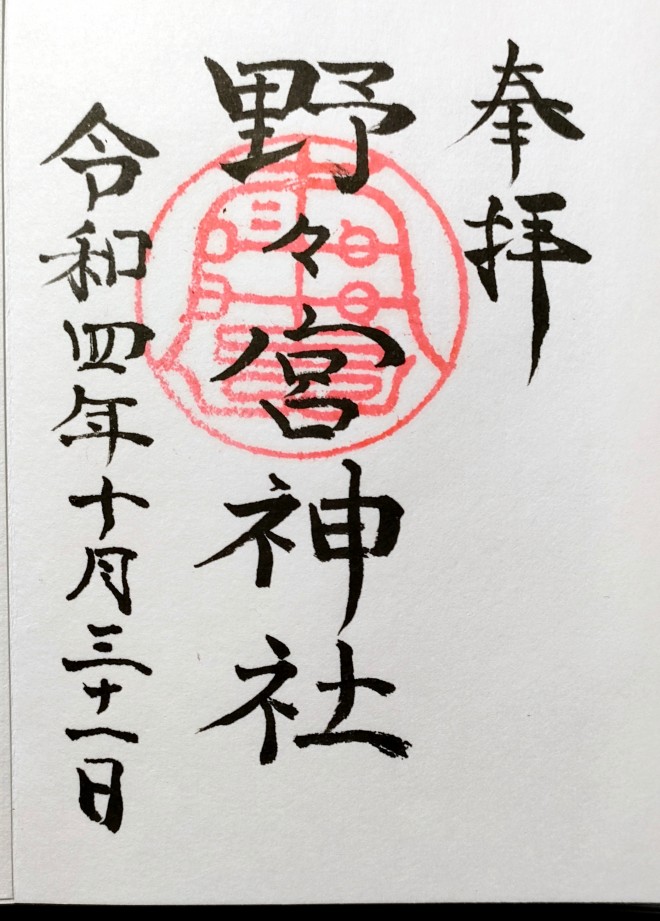 奉拝
野々宮神社
令和四年十月三十一日